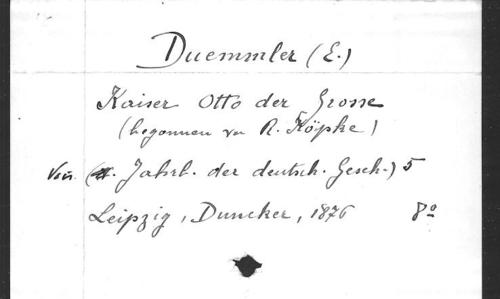 Duemmler (E.)
Kaiser Otto der Grosse
(begonnen von R. Köpke)
(Jahrb. der deutsch. Gesch.) 5
Leipzig, Duncker, 1876 8º